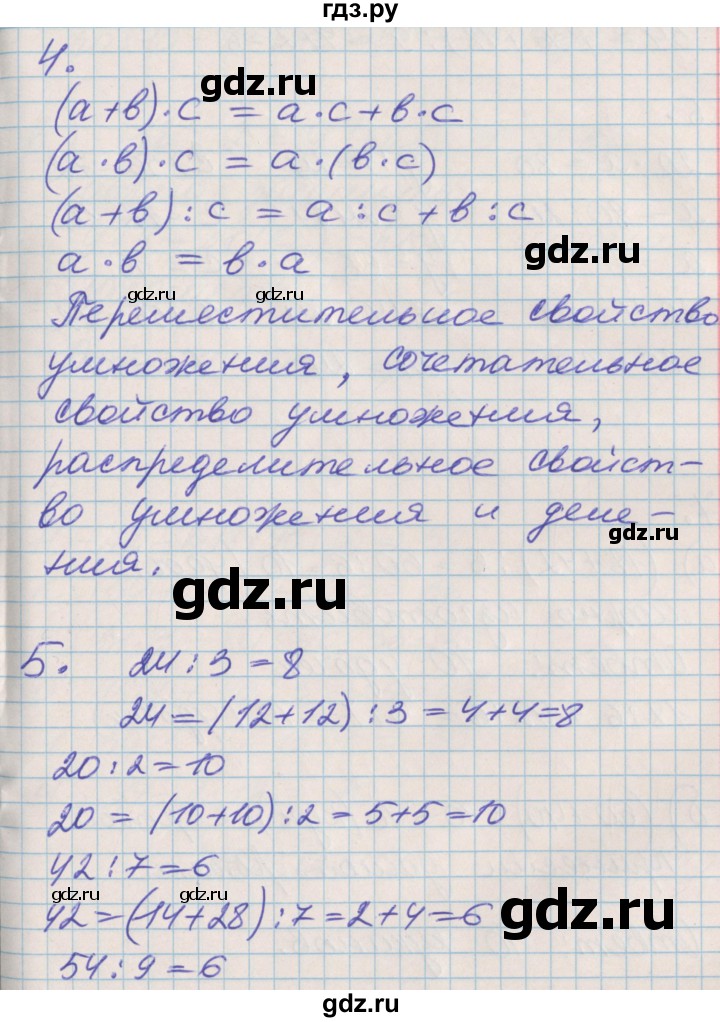 гдз.ру
4.
gdz.ru
(а+в)·с = а·с+в·с
(а·в)·с = а·(в·с)
(а+в):с = а:с+в:с
gdz.ru
а·в = в·а
gdz.ru gdz.ru
Переместительное свойство
умножения, сочетательное
свойство умножения,
распределительное свойст-
во умножения и деле-
gdz.ru
ния.
gdz.ru
5. 24:3=8
24=(12+12):3=4+4=8
20:2=10
20=(10+10):2=5+5=10
42:7=6
gdz.ru gdz.ru
42=(14+28):7=2+4=6
gdz.ru
54:9=6
gdz.ru